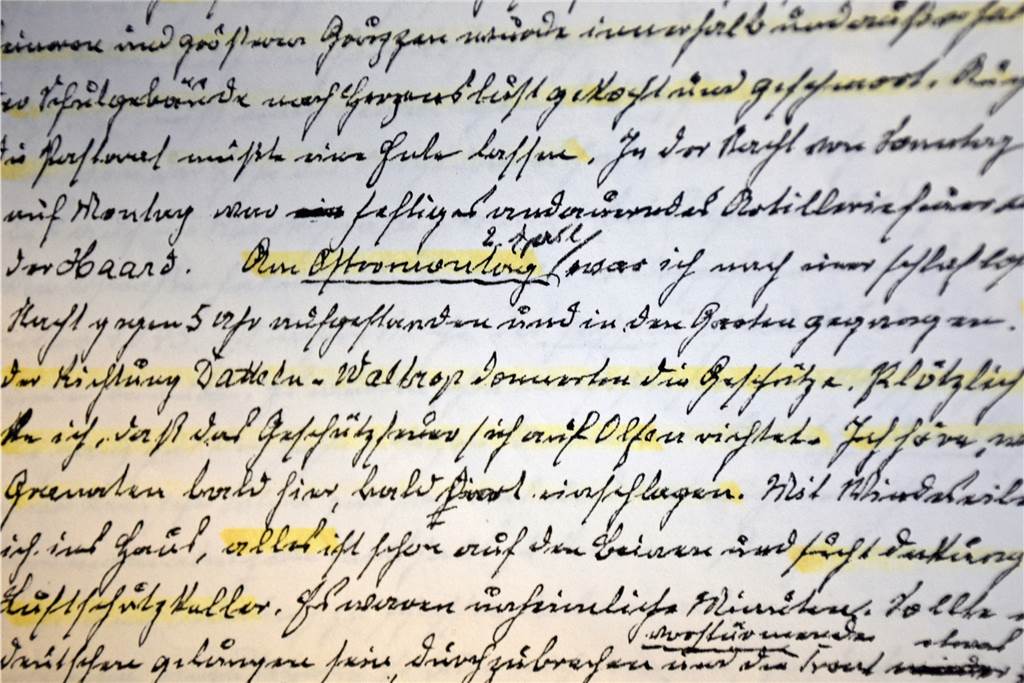 und größeren Gruppen wurde innerhalb und außerhal
Schulgebäude nach Herzenslust gekocht und geschmort. Auch
die Pastorat mußte eine Hule lassen. In der Nacht von Sonntag
auf Montag war heftiges andauerndes Artilleriefeuer
der Haard. Am Ostermontag 2. April war ich nach einer schlaflos
Nacht gegen 5 Uhr aufgestanden und in den Garten gegangen.
der Richtung Datteln-Waltrop donnerten die Geschütze. Plötzlich
te ich, daß das Geschützfeuer sich auf Olfen richtet. Ich höre,
Granaten bald hier, bald dort einschlagen. Mit Windeseile
ich ins Haus, alles ist schon auf den Beinen und sucht Deckung
Luftschutzkeller. Es waren unheimliche Minuten. Sollte
vorstürmende etwas
deutschen gelungen sein, durchzubrechen und die Front